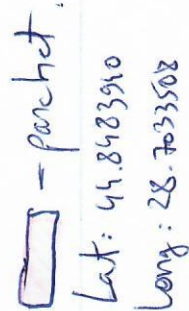 = parchet.
Lat: 44.8483940
Long: 28.7033508